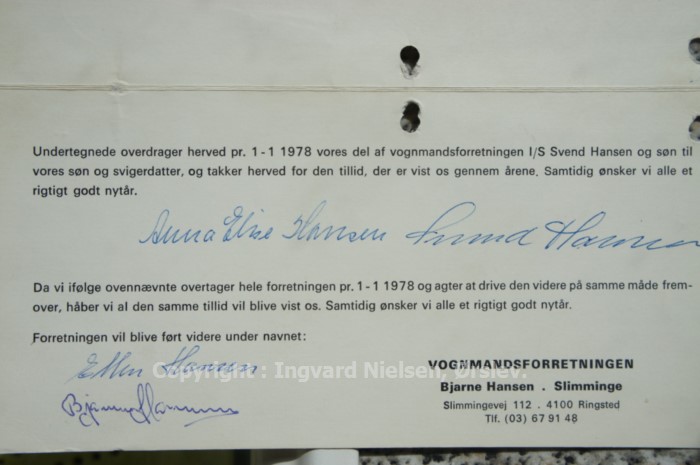 Undertegnede overdrager herved pr. 1-1 1978 vores del af vognmandsforretningen I/S Svend Hansen og søn til
vores søn og svigerdatter, og takker herved for den tillid, der er vist os gennem årene. Samtidig ønsker vi alle et
rigtigt godt nytår.
Anna Elise Hansen Svend Hansen
Da vi ifølge ovennævnte overtager hele forretningen pr. 1-1 1978 og agter at drive den videre på samme måde frem-
over, håber vi al den samme tillid vil blive vist os. Samtidig ønsker vi alle et rigtigt godt nytår.
Forretningen vil blive ført videre under navnet:
Ellen Hansen
Bjarne Hansen
Copyright : Ingvard Nielsen, Ørslev.
VOGNMANDSFORRETNINGEN
Bjarne Hansen . Slimminge
Slimmingevej 112 . 4100 Ringsted
Tlf. (03) 67 91 48